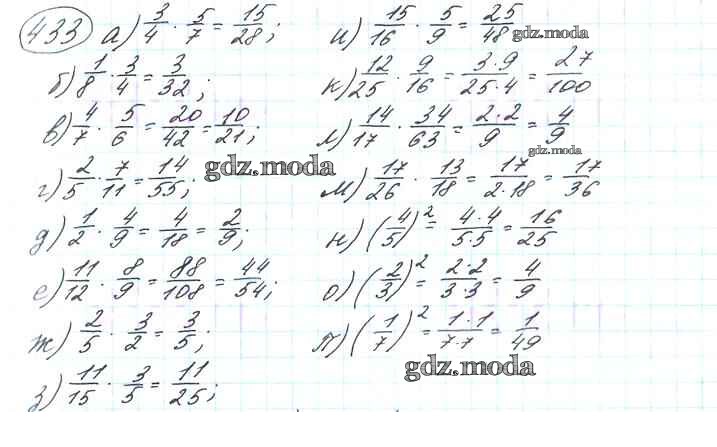 433 а) 3/4 · 5/7 = 15/28;
б) 1/8 · 3/4 = 3/32;
в) 4/7 · 5/6 = 20/42 = 10/21;
г) 2/5 · 7/11 = 14/55;
д) 1/2 · 4/9 = 4/18 = 2/9;
е) 11/12 · 8/9 = 88/108 = 44/54;
ж) 2/5 · 3/2 = 3/5;
з) 11/15 · 3/5 = 11/25;
и) 15/16 · 5/9 = 25/48
к) 12/25 · 9/16 = 3·9/25·4 = 27/100
л) 14/17 · 34/63 = 2·2/9 = 4/9
м) 17/26 · 13/18 = 17/2·18 = 17/36
н) (4/5)² = 4·4/5·5 = 16/25
о) (2/3)² = 2·2/3·3 = 4/9
п) (1/7)² = 1·1/7·7 = 1/49
gdz.moda
gdz.moda
gdz.moda
gdz.moda